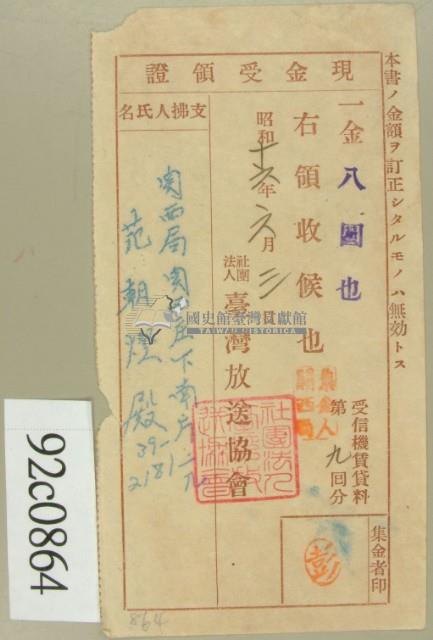 本書ノ金額ヲ訂正シタルモノハ無効トス
現金受領證
一金八圓也
右領收候也
受信機賃貸料
第九回分
集金者印
彭
昭和十六年六月三日
社團法人
臺灣放送協會
支拂人氏名
關西局關西庄下南片
范朝燈殿
39-
2181
國史館臺灣文獻館
TAIWAN HISTORICA
92c0864
864